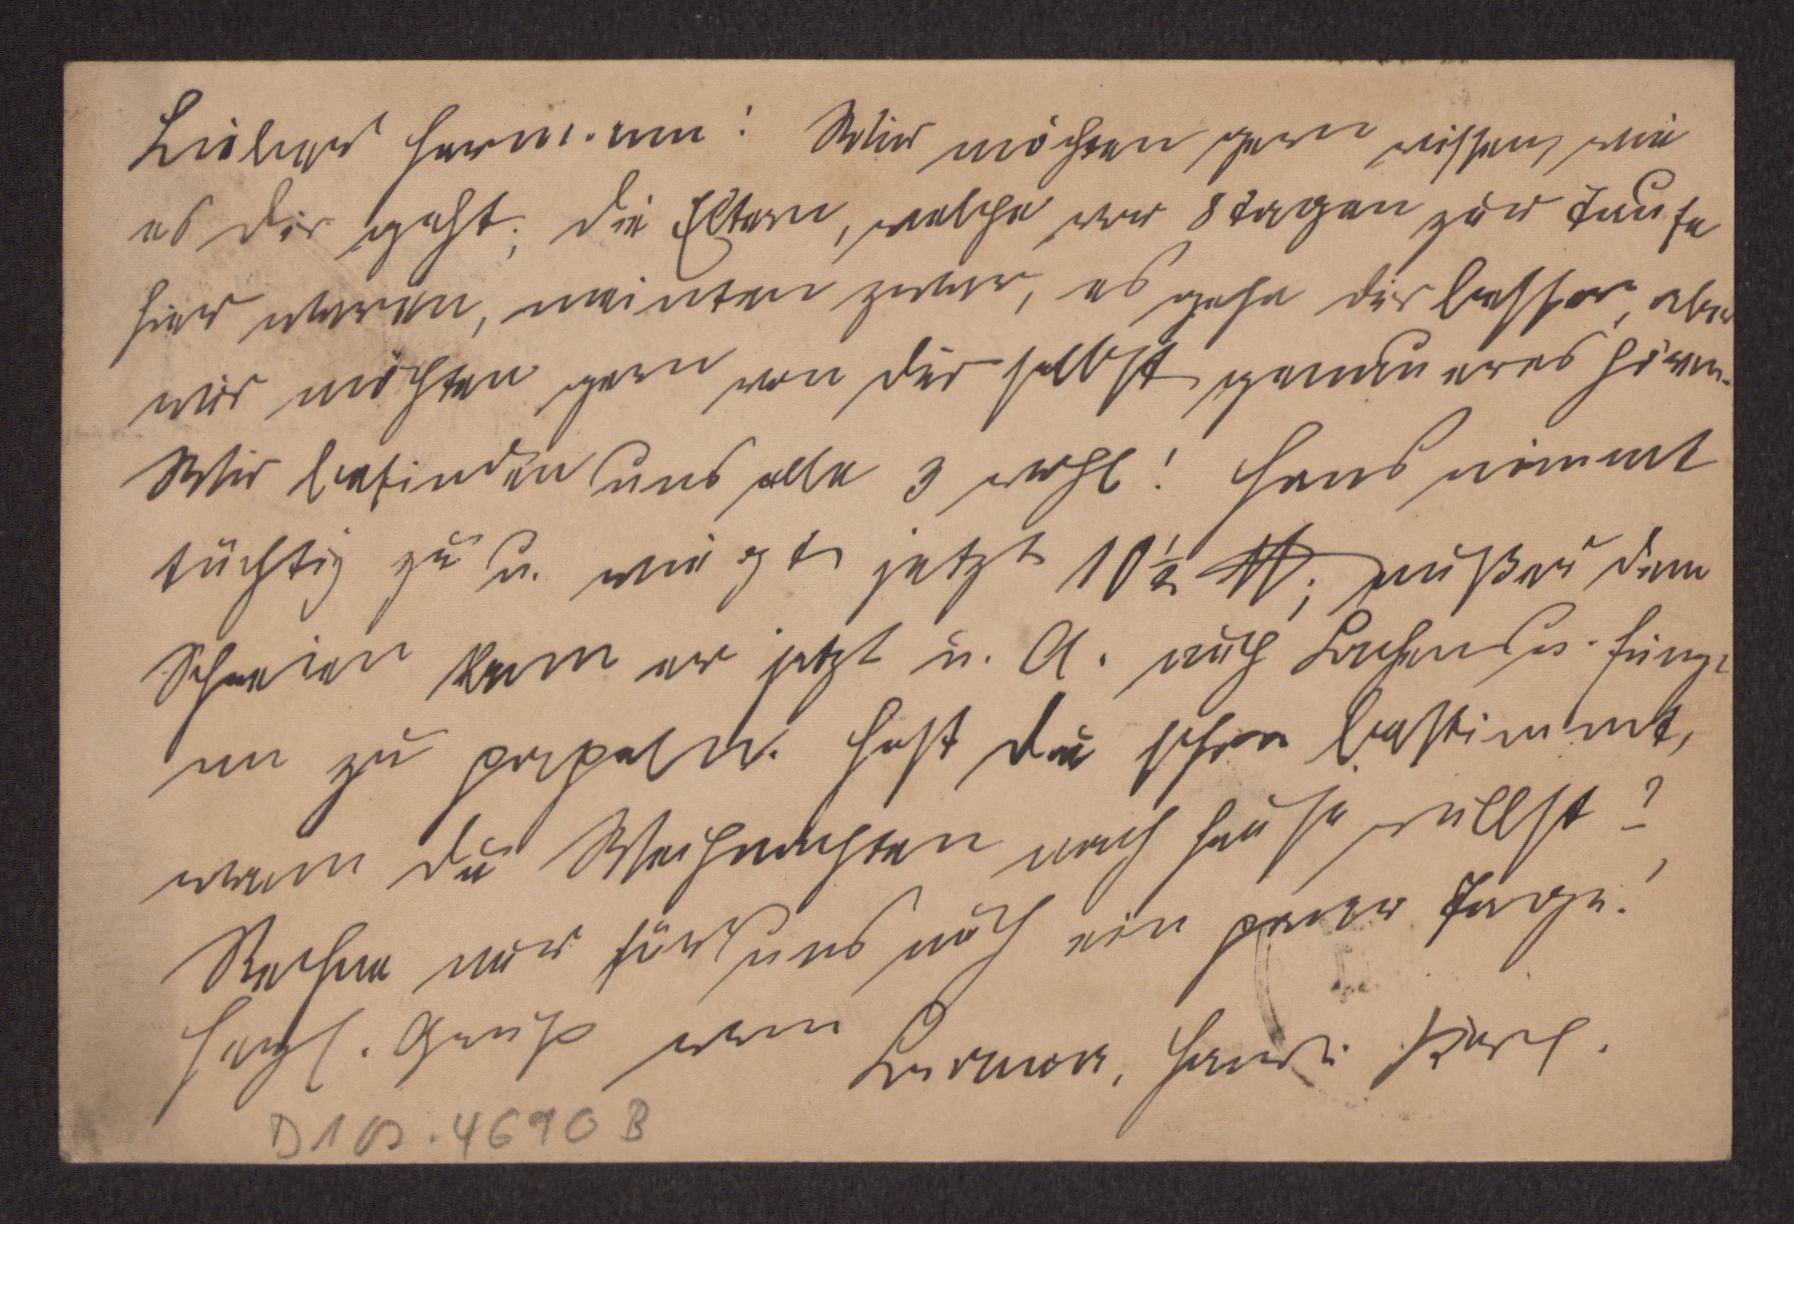 Lieber Hermann! Wir möchten gern wissen, wie
es dir geht; die Eltern, welche vor 8 Tagen zur Taufe
hier waren, meinten zwar, es gehe dir besser, aber
wir möchten gern von dir selbst genaueres hören.
Wir befinden uns alle 3 wohl! Hans nimmt
tüchtig zu u. wiegt jetzt 10½ ℔; außer dem
Schreien kann er jetzt u. A. auch Lachen u.
zu päpeln. Hast du schon bestimmt,
wann du Weihnachten nach Hause willst?
Rechne nur für uns auch ein paar Tage!
Herzl. Gruß von Leonore, Hans u. Karl.
D 102.4690 B